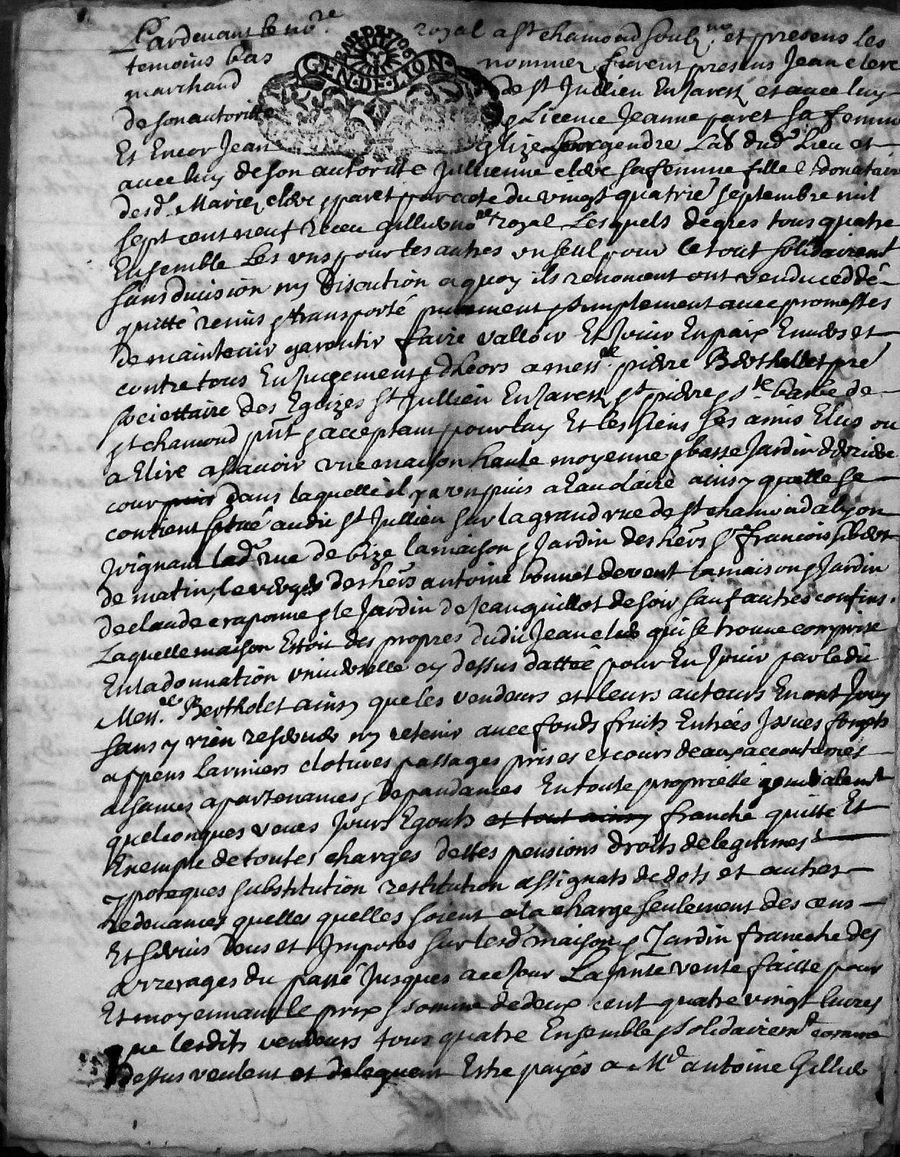 Pardevant le no.re royal a St chamond soub.né et presens les
temoins bas nommez furent presens Jean clerc
marchand de St Jullien En Jarest et avec luy
de son autorite & Licence Jeanne paret sa femme
Et Encor Jean gendre Lab dud. Lieu et
avec luy de son autorité Jullienne clerc sa femme fille & donataire
desd. Mariez clerc & paret par acte du vingt quatrie septembre mil
sept cent neuf receu Gillier no.re royal Lesquels de gres tous quatre
Ensemble Les uns pour les autres un seul pour le tout solidairem.ent
sans division ny discution a quoy ils renoncent ont vendu ceddé
quitté remis & transporté purement & simplement avec promesses
de maintenir garentir faire valloir Et Jouir En paix Envers et
contre tous En Jugement & dehors a mess.re pierre Berthollet pre
societtaire des Eglizes St Jullien En Jarest St pierre & s.te barbe de
St chamond pnt & acceptant pour luy Et les siens ses amis Elus ou
a Elire assavoir une maison haute moyenne & basse Jardin derriere
cour dans laquelle il y a un puis a Eau claire ainsy quelle se
contient situé audit St Jullien sur la grand rue de St chamond a lyon
Joignant lad. rue de bize la maison & Jardin des hers Sr francois
de matin, le verger des hers antoine bonnet de vent la maison & Jardin
de claude craponne & le Jardin de Jean guillot de soir sauf autres confins.
Laquelle maison Estoit des propres dudit Jean clerc qui se trouve comprise
En la donnation universelle cy dessus dattée pour En Jouir par ledit
Mess.re Bertholet ainsy que les vendeurs et leurs auteurs En ont Jouy
sans y rien reserver ny retenir avec fonds fruits Entrées Issues
appens larmiers clotures passages prises et cours deaux accoutumés
aisances apartenances & depandances En toute propriété generalement
quelconques veues Jours Egouts et tout ainsy franche quitte Et
Exempte de toutes charges dettes pensions droits de legitimes
Ipoteques substitution restitution assignats de dots et autres
redevances quelles quelles soient a la charge seulement des cens
Et servis deus et Imposés sur lesd. maison & Jardin franche des
arrerages du passé Jusques a ce Jour La pnte vente faitte pour
Et moyennant le prix & somme de deux cent quatre vingt livres
que lesdits vendeurs tous quatre Ensemble & solidairem.t comme
dessus veulent Estre payés a M.e antoine Gillier
GEN·DE·LYON